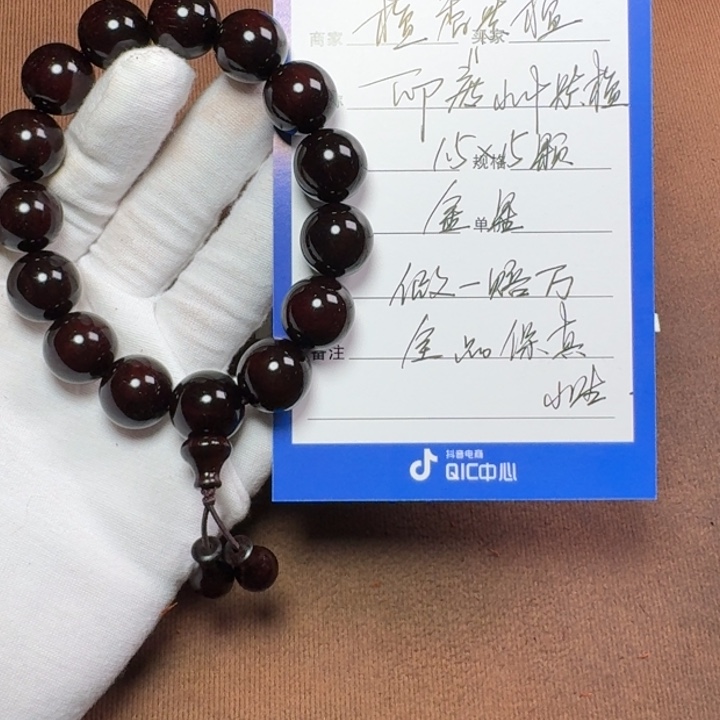 商家 檀香紫檀
印度小叶紫檀
规格 15×15颗
单 金星
假一赔万
备注 全品保真
小陆
抖音电商
QIC中心